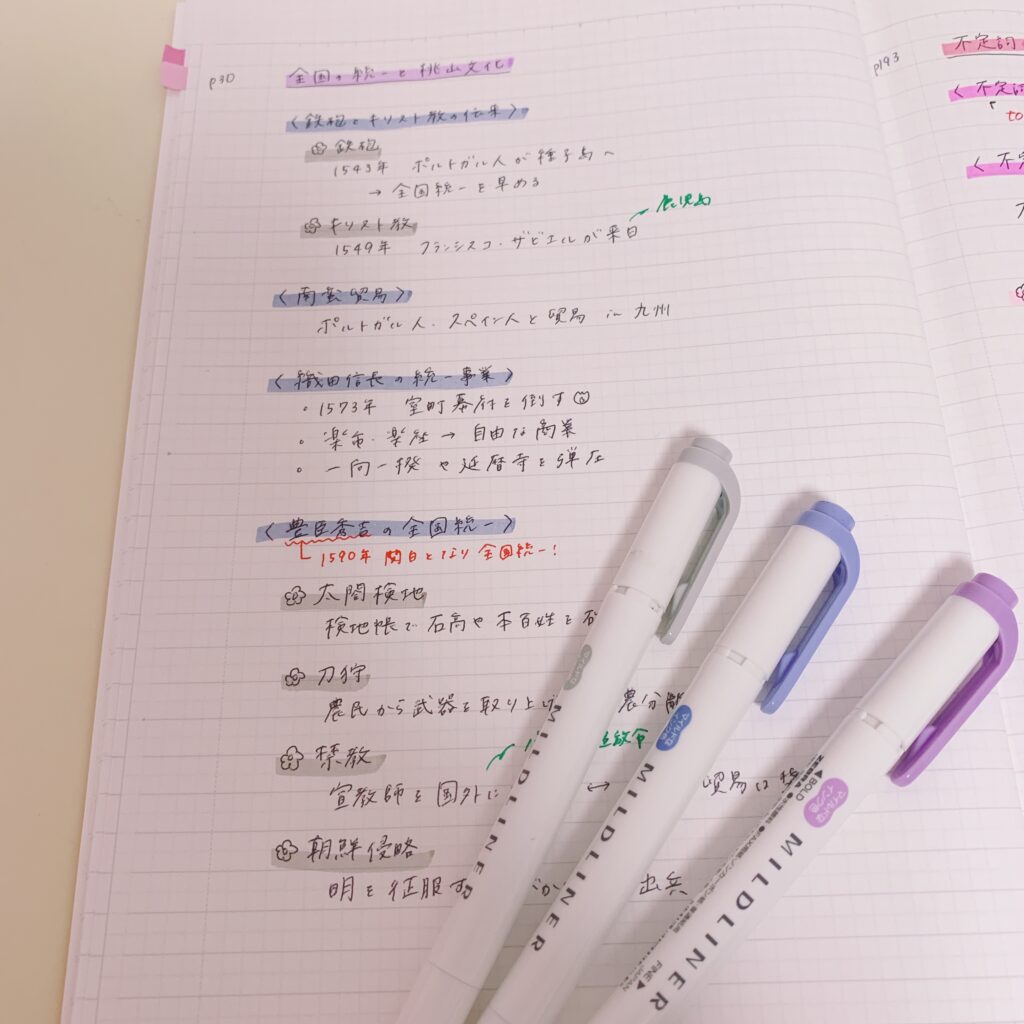 p30
全国の統一と桃山文化
〈鉄砲とキリスト教の伝来〉
鉄砲
1543年 ポルトガル人が種子島へ
→ 全国統一を早める
鹿児島
キリスト教
1549年 フランシスコ・ザビエルが来日
〈南蛮貿易〉
ポルトガル人・スペイン人と貿易 in 九州
〈織田信長の統一事業〉
・1573年 室町幕府を倒す
・楽市・楽座 → 自由な商業
・一向一揆や延暦寺を弾圧
〈豊臣秀吉の全国統一〉
1590年 関白となり全国統一!
太閤検地
検地帳で石高や本百姓を
刀狩
農民から武器を取り上げ 農分離
禁教
宣教師を国外に ↔ 貿易は
朝鮮侵略
明を征服す 出兵
p193
不定詞
〈不定詞
to
〈不定
マイルドな
インク色
MILDLINER
マイルドな
インク色
MILDLINER
ZEBRA
◀BOLD
マイルドな
インク色
MILDLINER
FINE▶
JAPAN